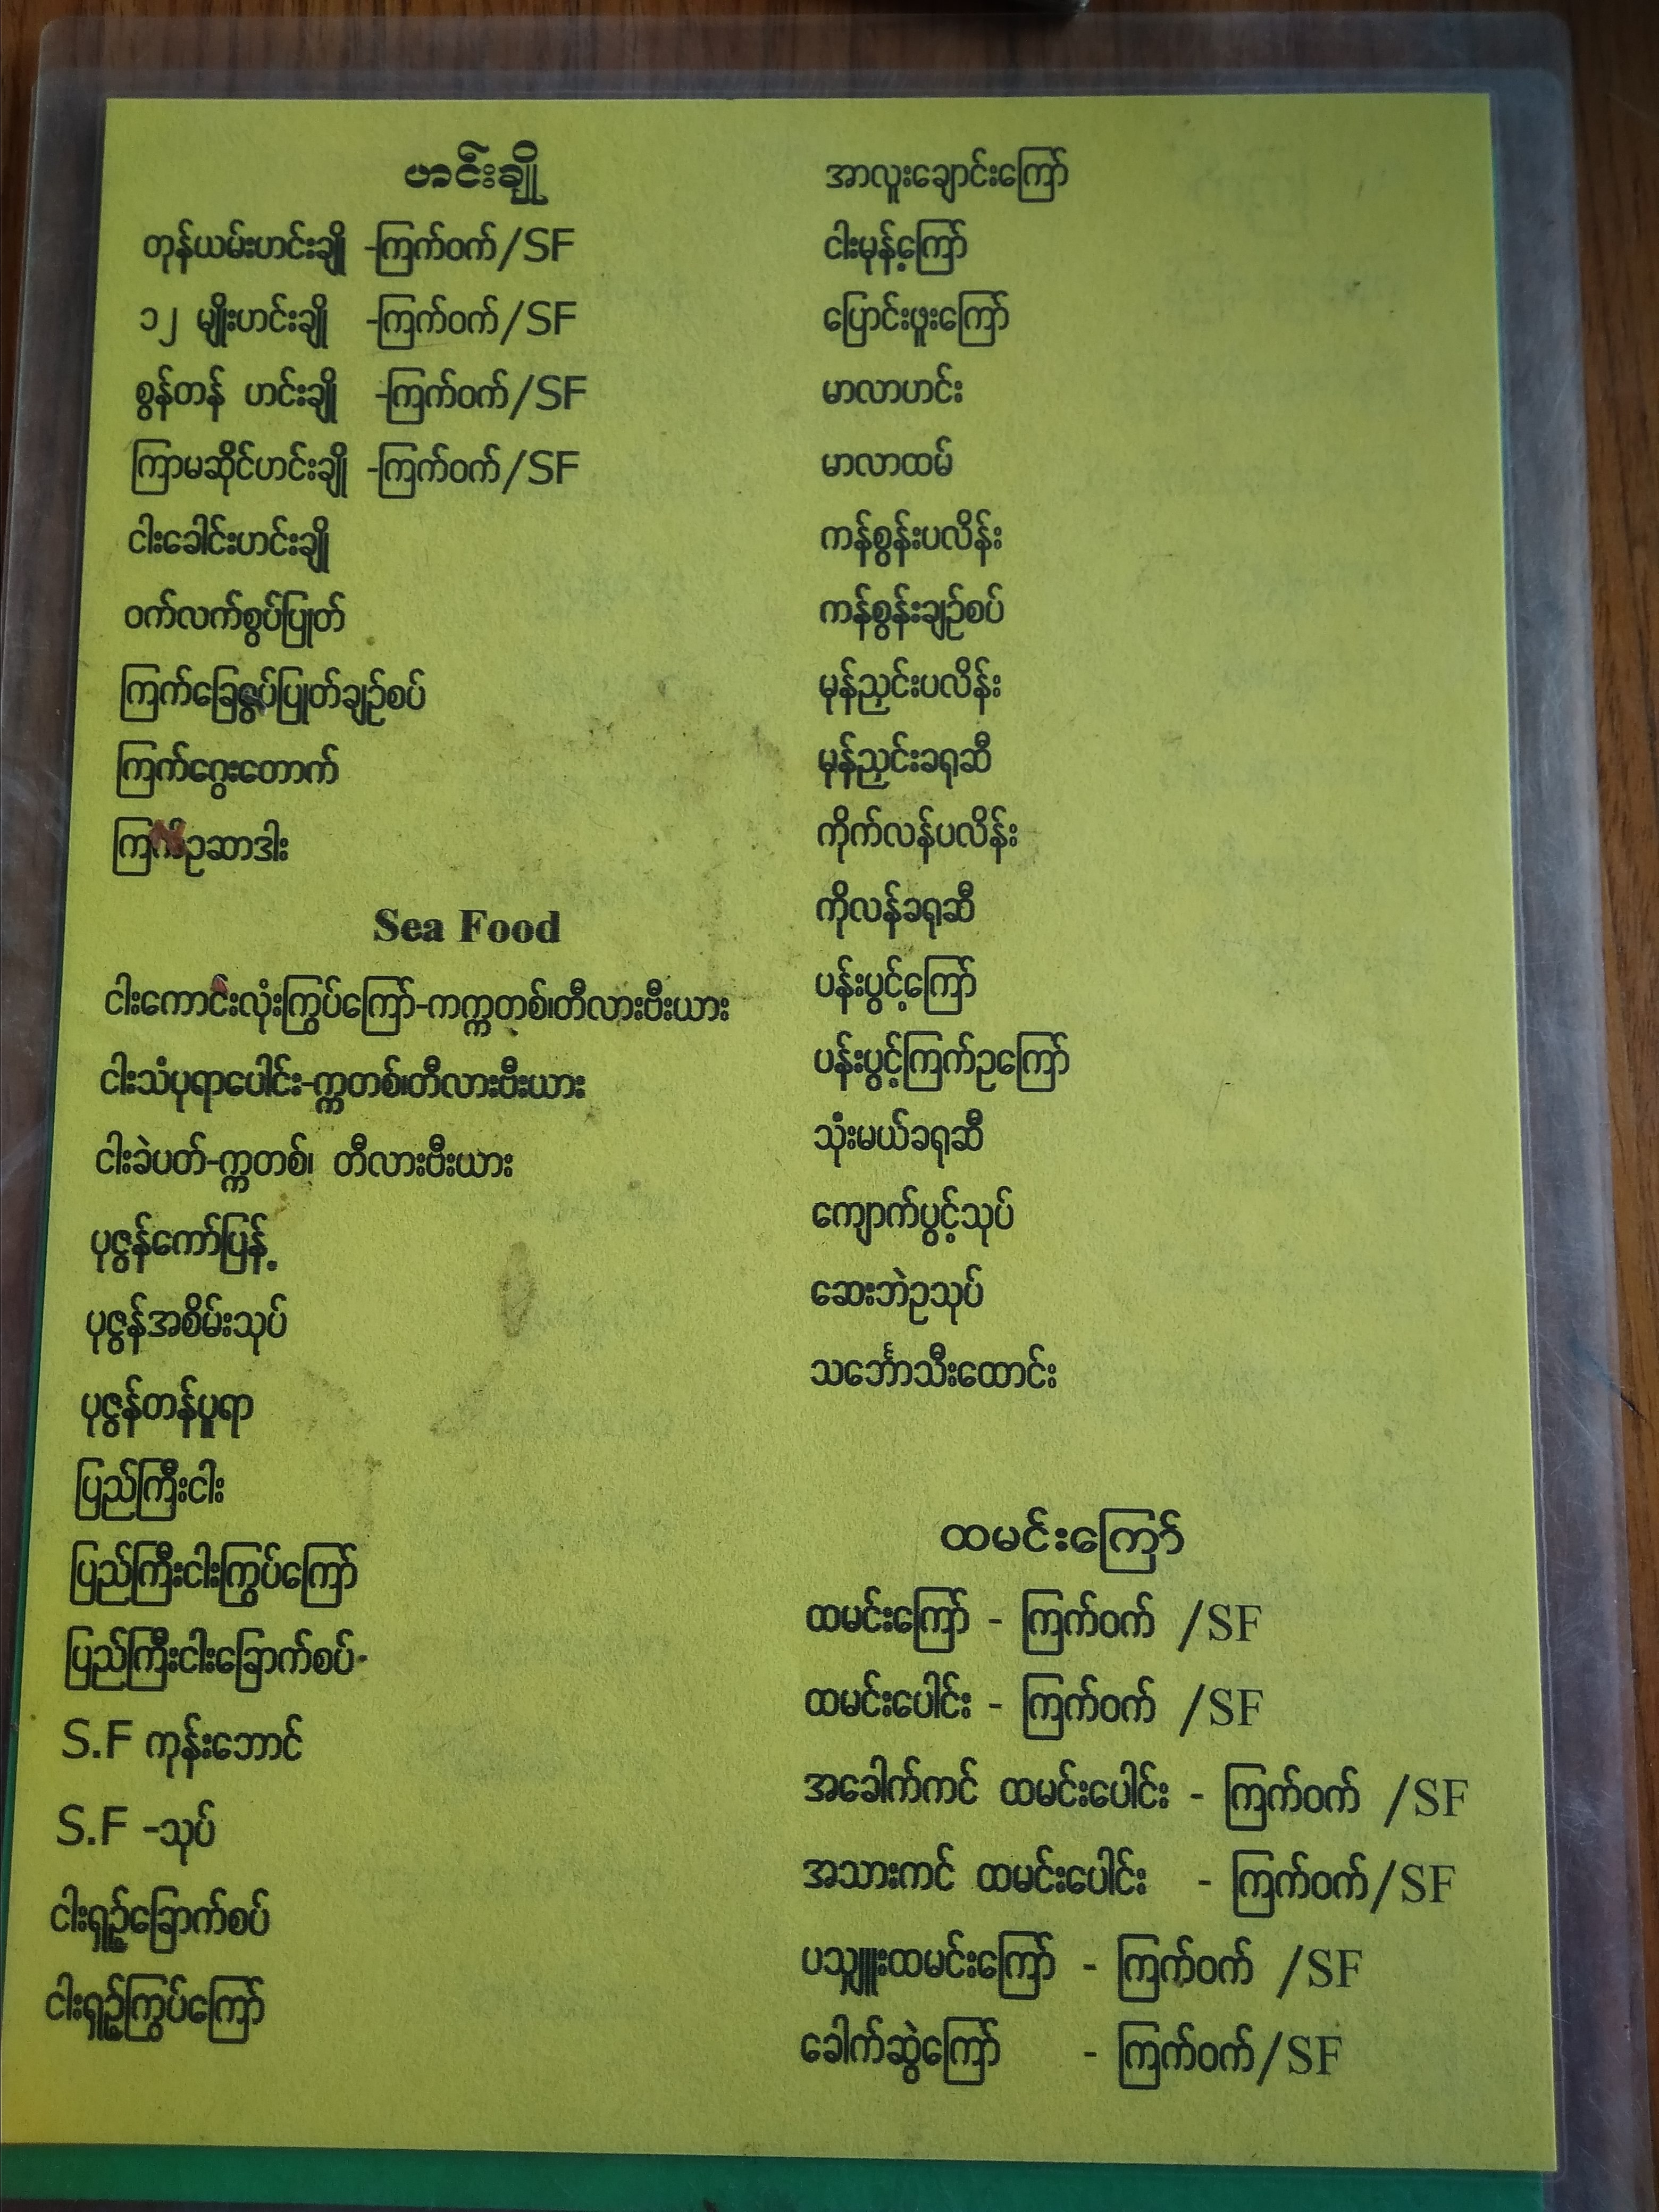 ဟင်းချို
တုန်ယမ်းဟင်းချို -ကြက်ဝက်/SF
၁၂ မျိုးဟင်းချို -ကြက်ဝက်/SF
စွန်တန် ဟင်းချို -ကြက်ဝက်/SF
ကြာမဆိုင်ဟင်းချို -ကြက်ဝက်/SF
ငါးခေါင်းဟင်းချို
ဝက်လက်စွပ်ပြုတ်
ကြက်ခြေစွပ်ပြုတ်ချဉ်စပ်
ကြက်ဂွေးတောက်
ကြက်ဥဆာဒါး
Sea Food
ငါးကောင်းလုံးကြွပ်ကြော်-ကက္ကတစ်၊တီလားဗီးယား
ငါးသံပုရာပေါင်း-က္ကတစ်၊တီလားဗီးယား
ငါးခဲပတ်-က္ကတစ်၊ တီလားဗီးယား
ပုဇွန်ကော်ပြန့်
ပုဇွန်အစိမ်းသုပ်
ပုဇွန်တန်ပူရာ
ပြည်ကြီးငါး
ပြည်ကြီးငါးကြွပ်ကြော်
ပြည်ကြီးငါးခြောက်စပ်
S.F ကုန်းဘောင်
S.F -သုပ်
ငါးရှဥ့်ခြောက်စပ်
ငါးရှဥ့်ကြွပ်ကြော်
အာလူးချောင်းကြော်
ငါးမုန့်ကြော်
ပြောင်းဖူးကြော်
မာလာဟင်း
မာလာထမ်
ကန်စွန်းပလိန်း
ကန်စွန်းချဉ်စပ်
မုန်ညှင်းပလိန်း
မုန်ညှင်းခရုဆီ
ကိုက်လန်ပလိန်း
ကိုလန်ခရုဆီ
ပန်းပွင့်ကြော်
ပန်းပွင့်ကြက်ဥကြော်
သုံးမယ်ခရုဆီ
ကျောက်ပွင့်သုပ်
ဆေးဘဲဥသုပ်
သင်္ဘောသီးထောင်း
ထမင်းကြော်
ထမင်းကြော် - ကြက်ဝက် /SF
ထမင်းပေါင်း - ကြက်ဝက် /SF
အခေါက်ကင် ထမင်းပေါင်း - ကြက်ဝက် /SF
အသားကင် ထမင်းပေါင်း - ကြက်ဝက်/SF
ပသျှူးထမင်းကြော် - ကြက်ဝက် /SF
ခေါက်ဆွဲကြော် - ကြက်ဝက်/SF